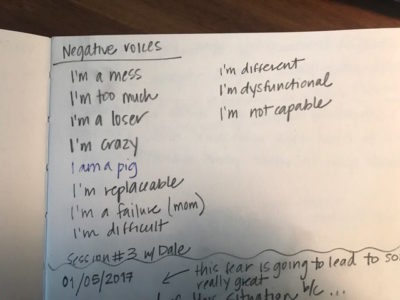 Negative voices
I'm a mess
I'm too much
I'm a loser
I'm crazy
I am a pig
I'm replaceable
I'm a failure (mom)
I'm difficult
I'm different
I'm dysfunctional
I'm not capable
Session #3 w/ Dale
01/05/2017
this fear is going to lead to so
really great
this situation b/c ...